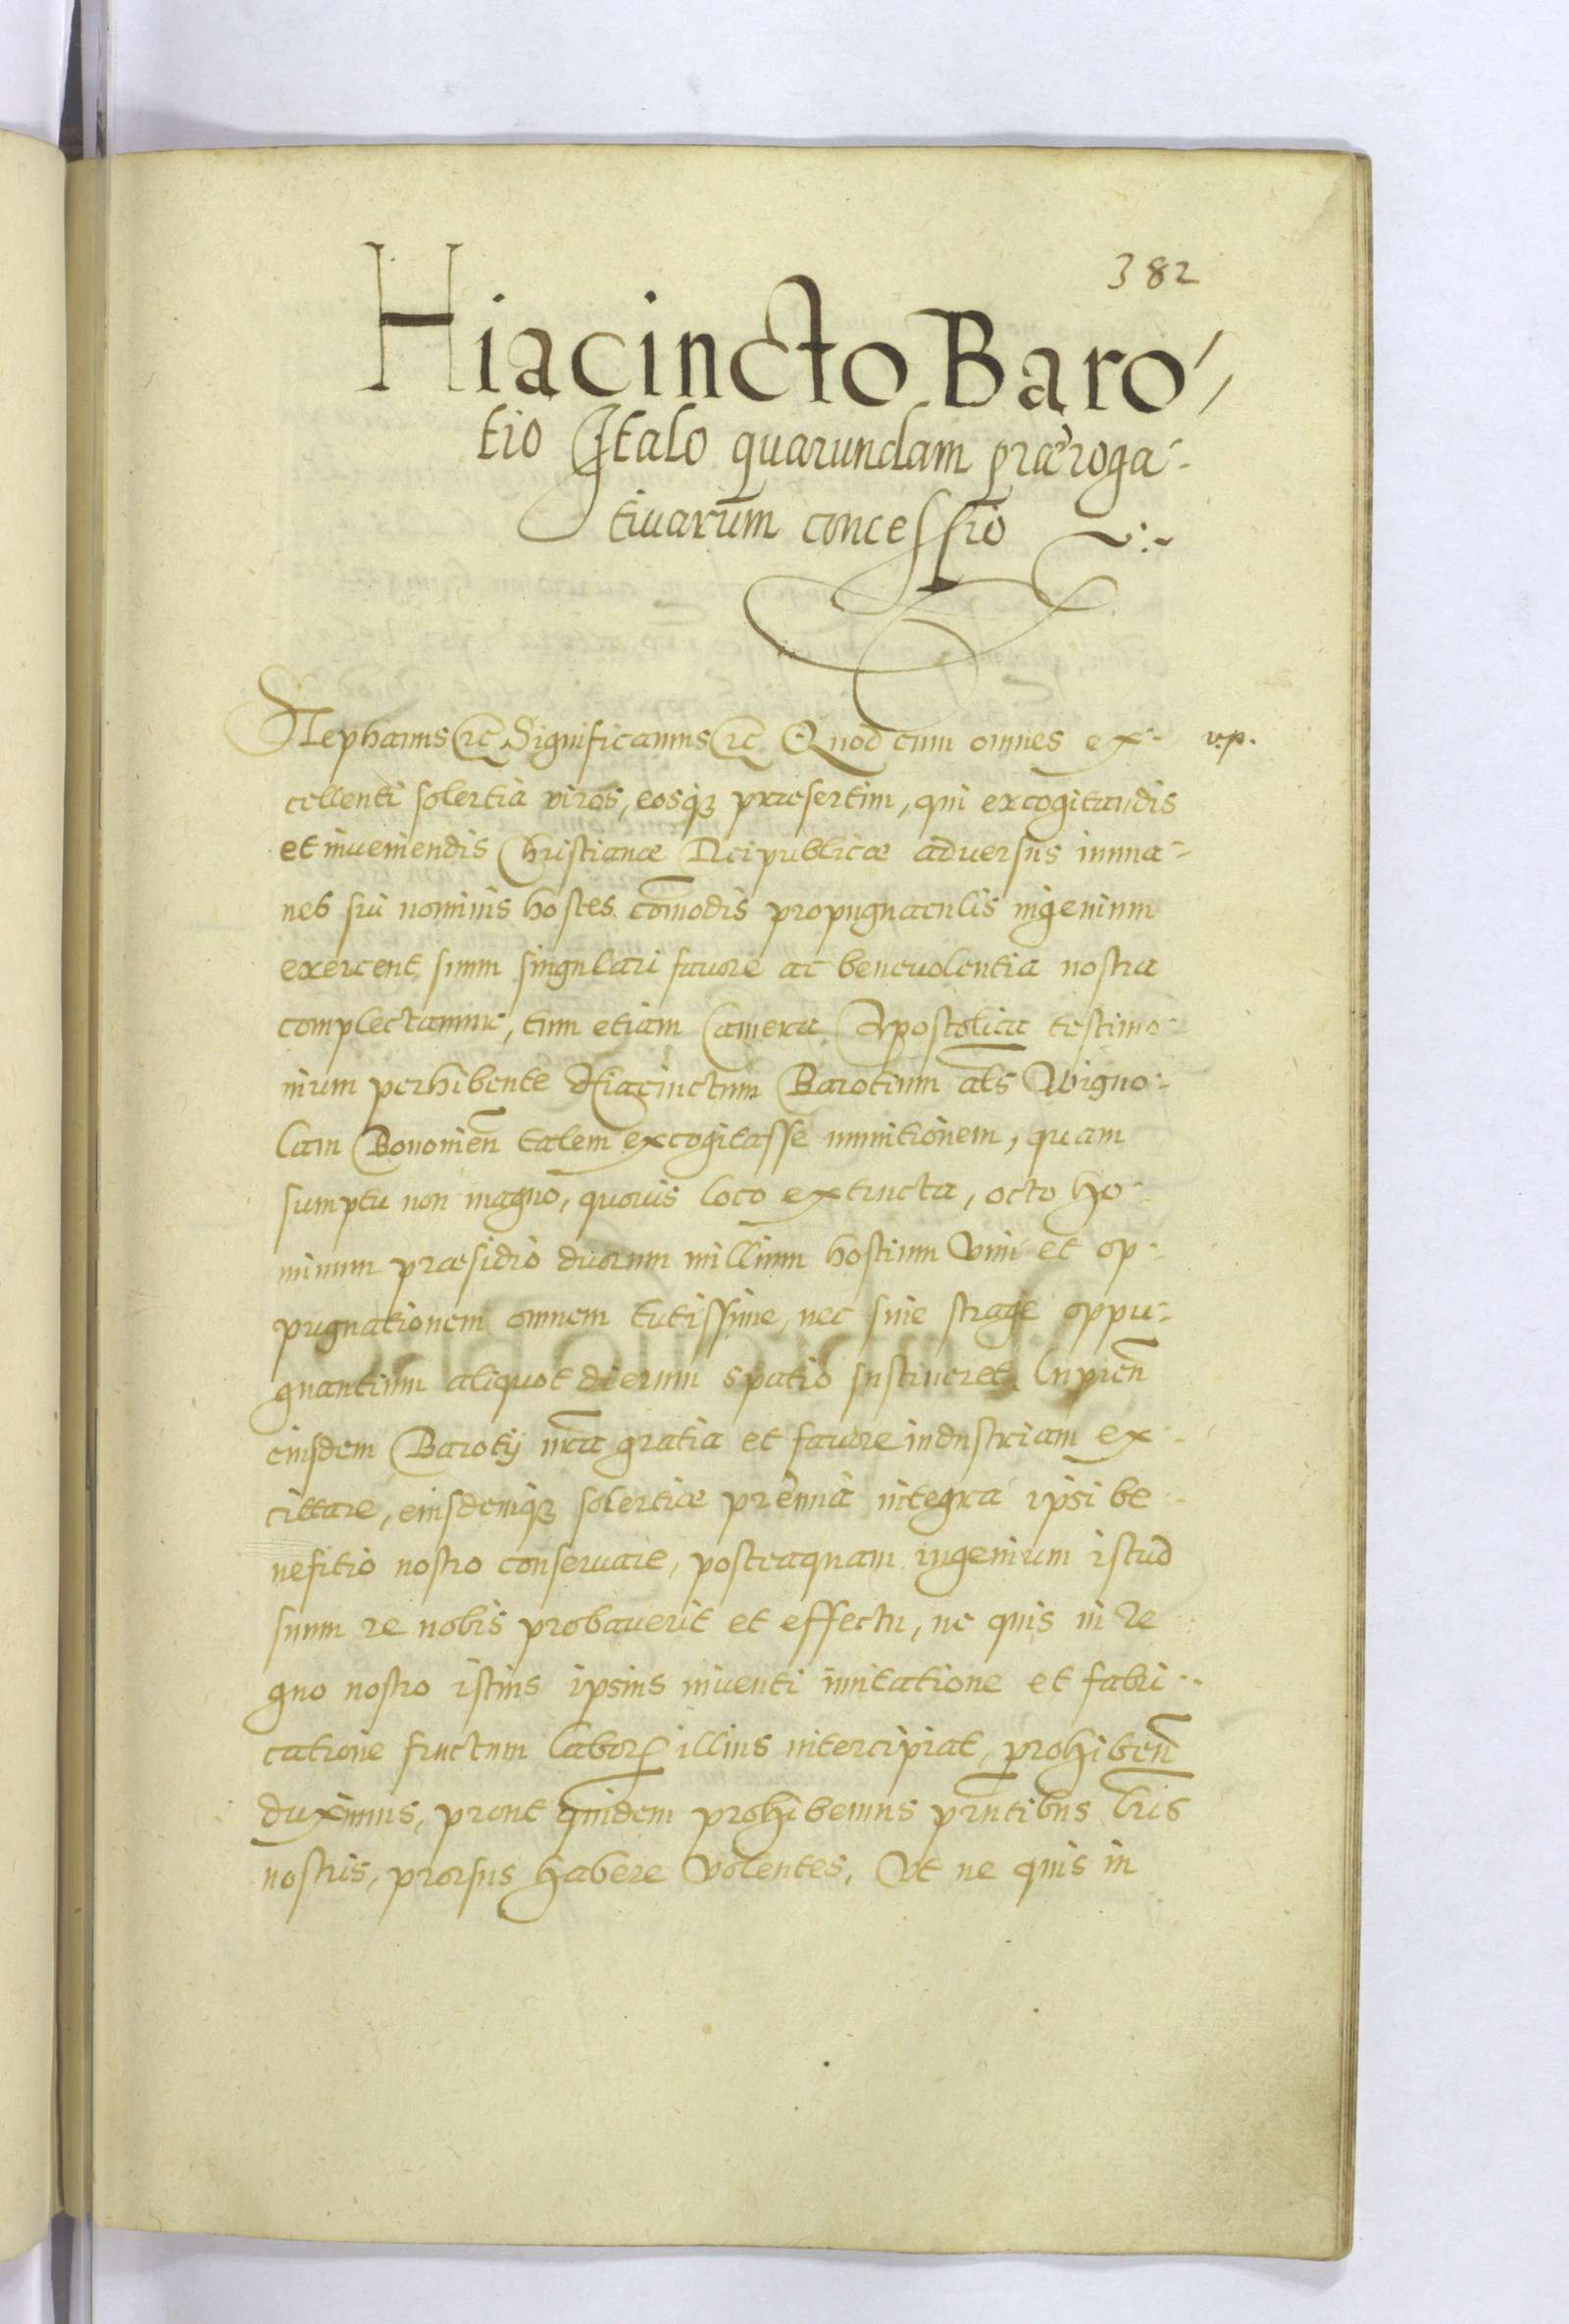 382
Hiacincto Baro-
tio Italo quarundam præroga-
tiuarum concessio
Stephanus etc Significamus etc Quod cum omnes ex- v.p.
cellenti solertia viros, eosq3 præsertim, qui excogitandis
et inueniendis Christianæ Reipublicæ adversus imma-
nes sui nominis hostes com̄odis propugnaculis ingenium
exercent, summ singulari fauore ac beneuolentia nostra
complectamur, tum etiam Camera Apostolica testimo-
nium perhibente Hiacinctum Barotium als Vigno-
lam Bononien̄ talem excogitasse munitionem, quam
sumptu non magno, quouis loco extructa, octo ho-
minum præsidio duorum millium hostium vim et op-
pugnationem omnem tutissime, nec sine strage oppu-
gnantium aliquot dierum spatio sustineret. Cupien̄
eiusdem Barotij nr̄a gratia et fauore industriam ex-
cittare, eiusdemq3 solertiæ premia integra ipsi be-
nefitio nostro conseruare, posteaquam ingenium istud
suum re nobis probauerit et effectu, ne quis in Re-
gno nostro istius ipsius inuenti imitatione et fabri-
catione fructum labor illius intercipiat, prohiben̄
duximus, prout quidem prohibemus prn̄tibus lr̄is
nostris, prorsus habere volentes, Vt ne quis in